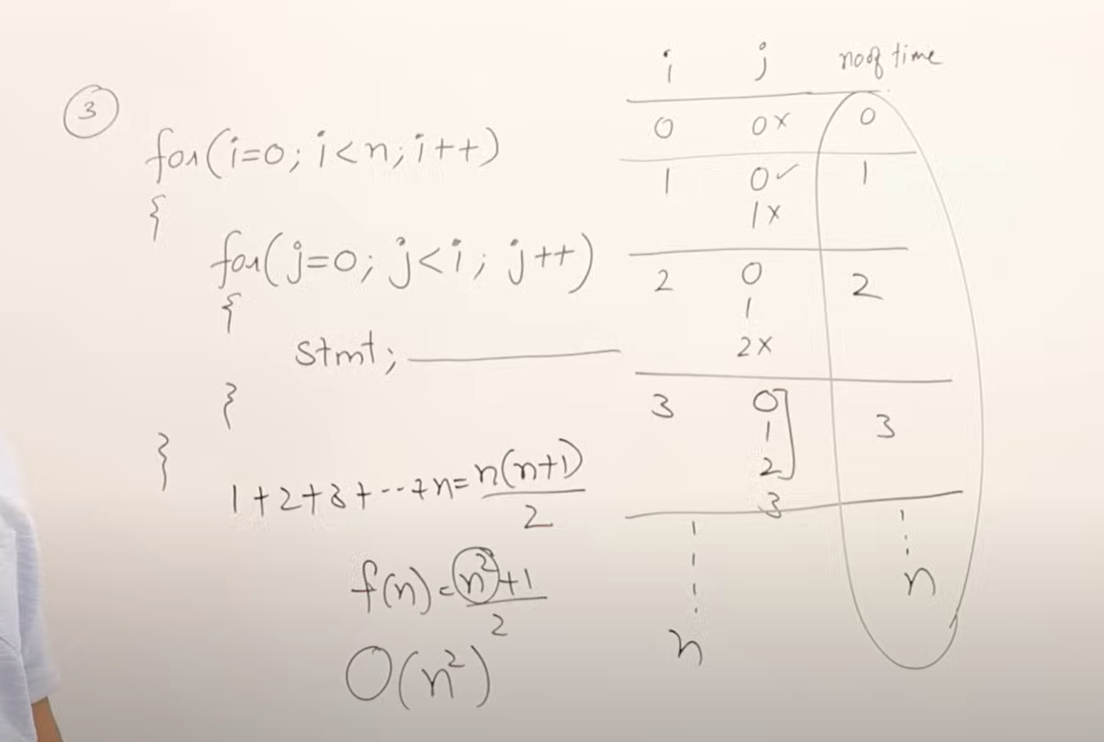 3
for(i=0; i<n; i++)
{
for(j=0; j<i; j++)
{
stmt;
}
}
1+2+3+---+n=n(n+1)/2
f(n)=n²+1/2
O(n²)
i j no of time
0 0× 0
1 0✓ 1
1×
2 0 2
1
2×
3 0 3
1
2
3
n n